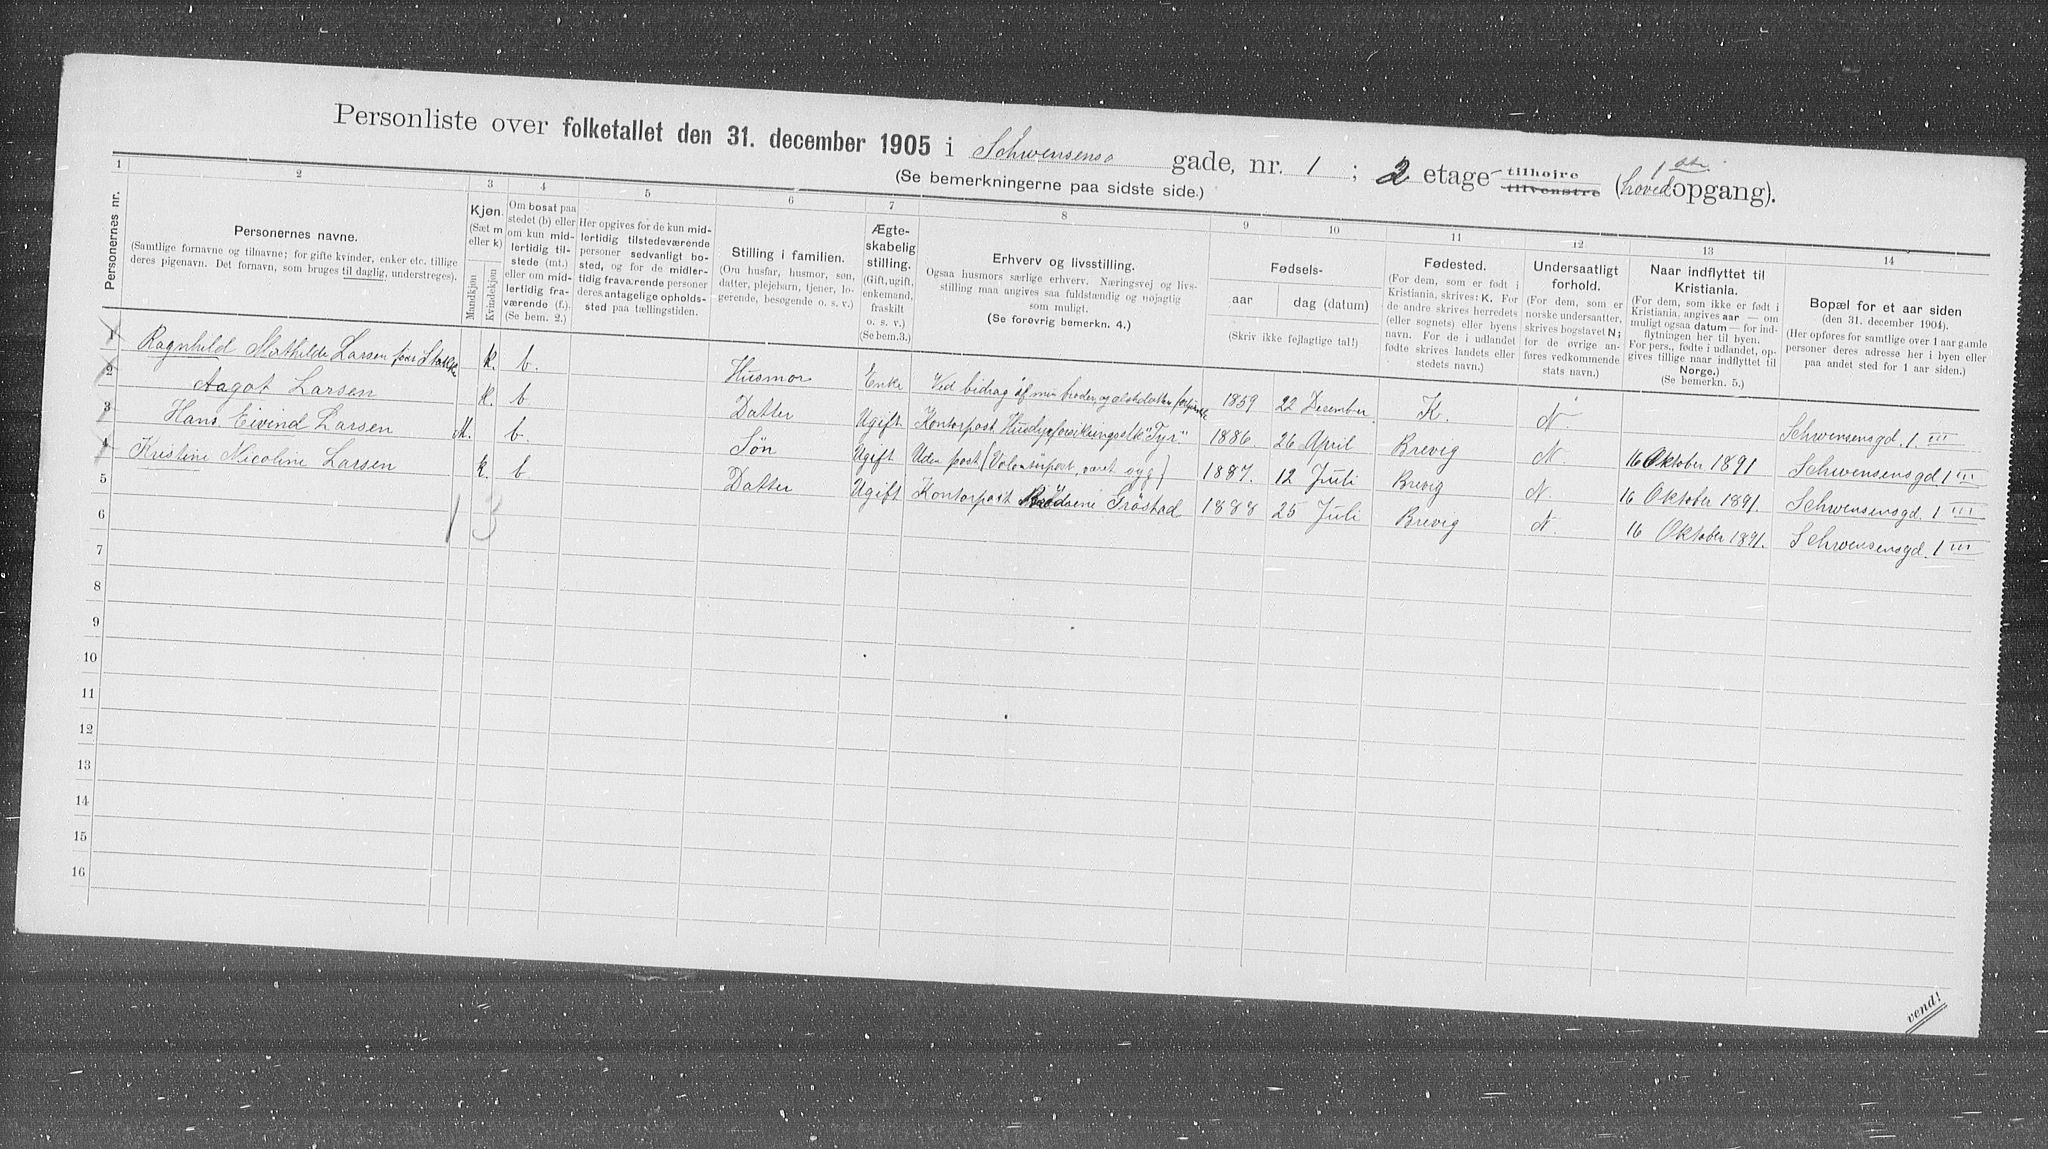 Personliste over folketallet den 31. december 1905 i Schwensens gade, nr. 1 ; 2 etage tilhøjre tilvenstre (hoved opgang).
(Se bemerkningerne paa sidste side.)
1 2 3 4 5 6 7 8 9 10 11 12 13 14
Personernes nr.
Personernes navne.
(Samtlige fornavne og tilnavne; for gifte kvinder, enker etc. tillige
deres pigenavn. Det fornavn, som bruges til daglig, understreges).
Kjøn.
(Sæt m
eller k)
Mandkjøn
Kvindekjøn
Om bosat paa
stedet (b) eller
om kun mid-
lertidig til-
stede (mt.)
eller om mid-
lertidig fra-
værende (f.).
(Se bem. 2.)
Her opgives for de kun mid-
lertidig tilstedeværende
personer sedvanligt bo-
sted, og for de midler-
tidig fraværende personer
deres antagelige opholds-
sted paa tællingstiden.
Stilling i familien.
(Om husfar, husmor, søn,
datter, plejebarn, tjener, lo-
gerende, besøgende o. s. v.)
Ægte-
skabelig
stilling.
(Gift, ugift,
enkemand,
fraskilt
o. s. v.)
(Se bem.3.)
Erhverv og livsstilling.
Ogsaa husmors særlige erhverv. Næringsvej og livs-
stilling maa angives saa fuldstændig og nøjagtig
som muligt.
(Se forøvrig bemerkn. 4.)
Fødsels-
aar
dag (datum)
(Skriv ikke fejlagtige tal!)
Fødested.
(For dem, som er født i
Kristiania, skrives: K. For
de andre skrives herredets
(eller sognets) eller byens
navn. For de i udlandet
fødte skrives landets eller
stedets navn.)
Undersaatligt
forhold.
(For dem, som er
norske undersaatter,
skrives bogstavet N;
for de øvrige an-
føres vedkommende
stats navn.)
Naar indflyttet til
Kristiania.
(For dem, som ikke er født i
Kristiania, angives aar — om
muligt ogsaa datum — for ind-
flytningen her til byen.
For pers., fødte i udlandet, op-
gives tillige naar indflyttet til
Norge.)
(Se bemerkn. 5.)
Bopæl for et aar siden
(den 31. december 1904).
(Her opføres for samtlige over 1 aar gamle
personer deres adresse her i byen eller
paa andet sted for 1 aar siden.)
1 Ragnhild Mathilde Larsen k. b. Husmor Enke Ved bidrag af min broder og 1859 22 Desember K. N. Schwensensgd. 1 III
2 Aagot Larsen k. b Datter Ugift Kontorpost "Tyr" 1886 26 April Brevig N. 16 Oktober 1891 Schwensensgd 1 III
3 Hans Eivind Larsen M. b. Søn Ugift Uden post 1887. 12 Juli Brevig N. 16 Oktober 1891. Schwensensgd. 1 III
4 Kristine Nicoline Larsen k. b Datter Ugift Kontorpost Trøstad 1888 25 Juli Brevig N. 16 Oktober 1891. Schwensensgd. 1 III
5
6
13
7
8
9
10
11
12
13
14
15
16
vend!